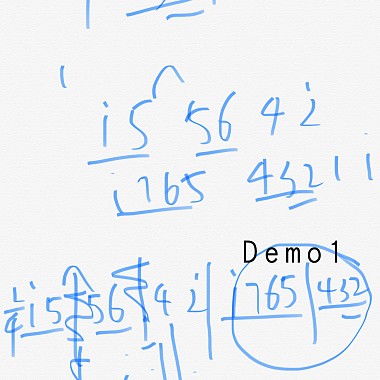 i5 56 4 i
i765 432 1 1
Demo1
1/4 i5 56 4 i | i765 | 432